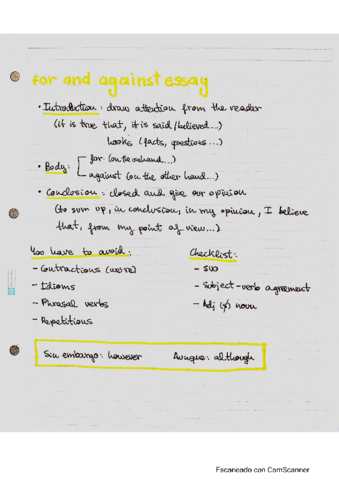 for and against essay
• Introduction: draw attention from the reader
(it is true that, it is said/believed...)
hooks (facts, questions...)
• Body: for (on the one hand...)
against (on the other hand...)
• Conclusion: closed and give our opinion
(to sum up, in conclusion, in my opinion, I believe
that, from my point of view...)
You have to avoid:
- Contractions (we're)
- Idioms
- Phrasal verbs
- Repetitions
Checklist:
- SVO
- Subject-verb agreement
- Adj (s) noun
Sin embargo: however
Aunque: although
Escaneado con CamScanner